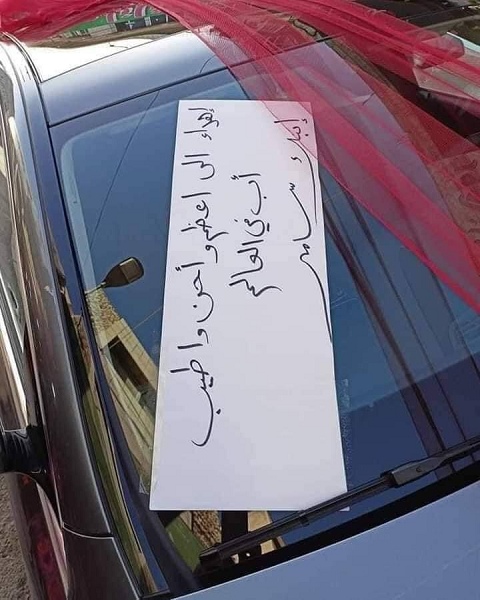 إهداء الى اعظم و أحن و اطيب
أب في العالم
إبنك سامر